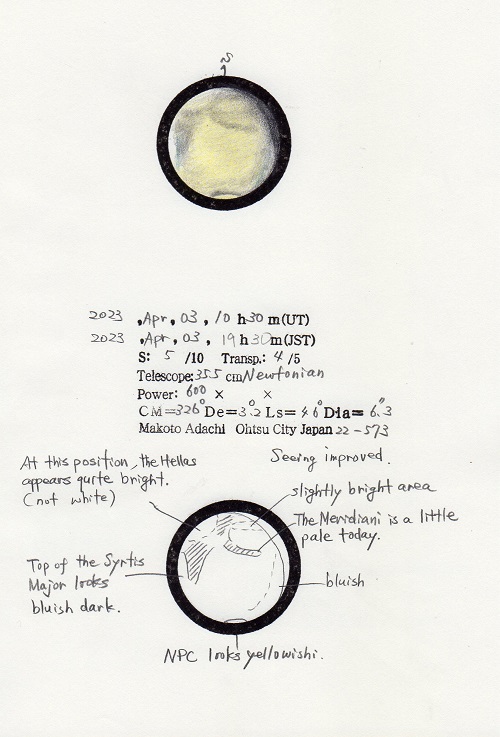 S
2023 , Apr, 03 , 10 h 30 m (UT)
2023 , Apr, 03 , 19 h 30 m (JST)
S: 5 /10 Transp.: 4 /5
Telescope: 355 cm Newtonian
Power: 600 × ×
CM=326° De=3.°2 Ls=46° Dia=6."3
Makoto Adachi Ohtsu City Japan 22-573
At this position, the Hellas
appears quite bright.
(not white)
Seeing improved.
slightly bright area
The Meridiani is a little
pale today.
Top of the Syrtis
Major looks
bluish dark.
bluish
NPC looks yellowishi.